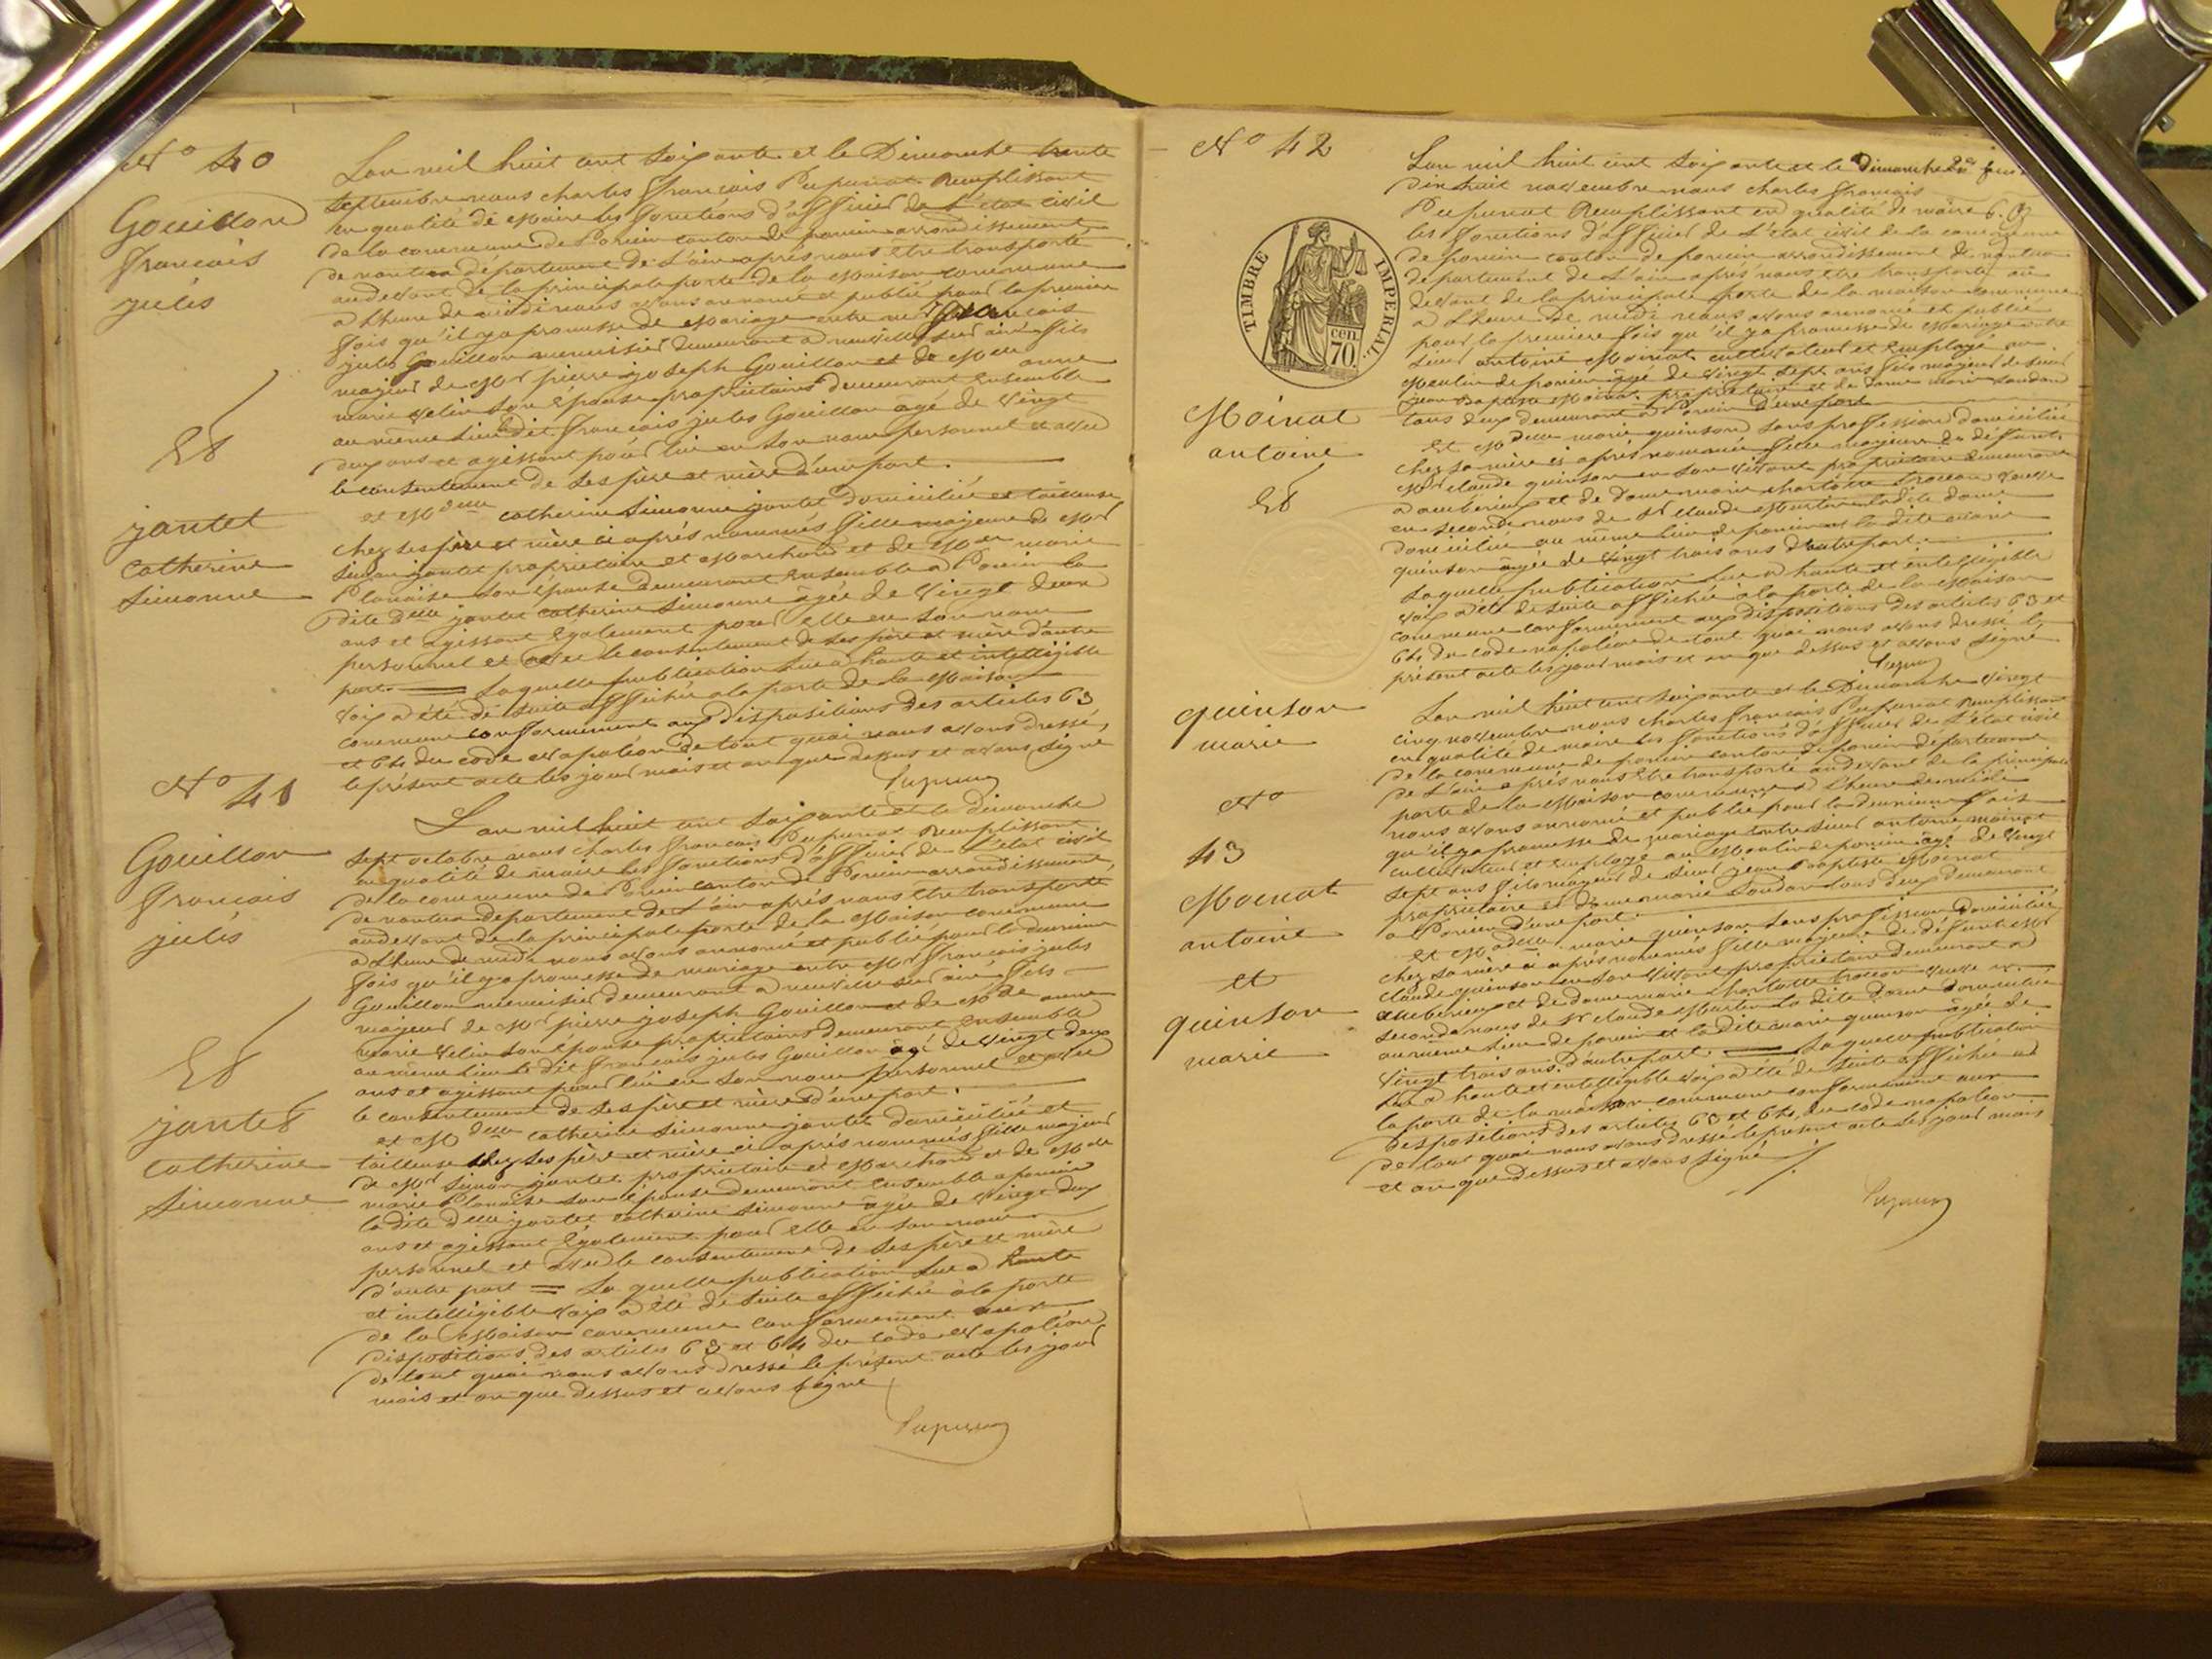 N° 40
Gouillon
françois
jules
Et
jantet
catherine
Simonne
L'an mil huit cent soixante et le Dimanche trente
septembre nous charles françois Pupunat Remplissant
en qualité de Maire les fonctions d'officier de L'etat civil
de la commune de Poncin canton de poncin arrondissement
de nantua département de L'ain après nous être transporté
audevant de la principale porte de la Maison commune
a L'heure de midi nous avons annoncé et publié pour la premier
fois qu'il y a promesse de Mariage entre françois
jules Gouillon menuisier demeurant a neuville sur ain fils
majeur de Mr pierre joseph Gouillon et de Mde anne
marie velin son Epouse propriétaires demeurant Ensemble
au même lieu Le dit françois jules Gouillon âgé de vingt
deux ans et agissant pour lui en son nom personnel et avec
le consentement de ses père et mère d'une part.
et Mdelle catherine Simonne jantet domiciliée et tailleuse
chez ses père et mère ci après nommés fille majeure de Mr
Simon jantet propriétaire et Marchand et de Mde marie
Planaise son épouse demeurant Ensemble a Poncin la
dite Delle jantet catherine Simonne âgée de vingt deux
ans et agissant Egalement pour elle en son nom
personnel et avec le consentement de ses père et mère d'autre
part. = Laquelle publication lue a haute et intelligible
voix a été de suite affichée a la porte de la Maison
commune conformément aux dispositions des articles 63
et 64 du code Napoléon de tout quoi nous avons dressé,
le présent acte les jour mois et an que dessus et avons signé
Pupunat
N° 41
Gouillon
françois
jules
Et
jantet
catherine
Simonne
L'an mil huit cent soixante et le dimanche
sept octobre nous charles françois Pupunat Remplissant
en qualité de maire les fonctions d'officier de L'état civil
de la commune de Poncin canton de Poncin arrondissement,
de nantua departement de L'ain après nous être transporté
audevant de la principale porte de la Maison commune
a L'heure de midi nous avons annoncé et publié pour la dernière
fois qu'il y a promesse de mariage entre Mr françois jules
Gouillon menuisier demeurant a neuville sur ain fils
majeur de Mr pierre joseph Gouillon et de Mde anne
marie velin son épouse propriétaires demeurant Ensemble
au même lieu le dit françois jules Gouillon âgé de vingt deux
ans et agissant pour lui en son nom personnel et avec
le consentement de ses père et mère d'une part.
et Mdelle catherine Simonne jantet domiciliée et
tailleuse chez ses père et mère ci après nommés fille majeur
de Mr Simon jantet propriétaire et Marchand et de Mde
marie Planaise son épouse demeurant ensemble a poncin
la dite Delle jantet catherine Simonne âgée de vingt deux
ans et agissant Egalement pour elle en son nom
personnel et avec le consentement de ses père et mère
d'autre part = La quelle publication lue a haute
et intelligible voix a été de suite affichée à la porte
de la Maison commune conformément aux
dispositions des articles 63 et 64 du code Napoléon
de tout quoi nous avons dressé le présent acte les jour
mois et an que dessus et avons signé
Pupunat
N° 42
TIMBRE IMPERIAL.
cen
70.
Moinat
antoine
Et
quinson
marie
L'an mil huit cent soixante et le Dimanche
Dix huit novembre nous charles françois
Pupunat Remplissant en qualité de maire
les fonctions d'officier de L'état civil de la commune
de poncin canton de poncin arrondissement de nantua
département de L'ain après nous être transporté au
devant de la principale porte de la maison commune
a L'heure de midi nous avons annoncé et publié
pour la premiere fois qu'il y a promesse de Mariage entre
sieur antoine Moinat cultivateur et Employé au
Moulin de poncin âgé de vingt sept ans fils majeur de sieur
jean Baptiste Moinat propriétaire et de dame marie Soudan
tous deux demeurant a Poncin d'une part
et Mdelle marie quinson sans profession domiciliée
chez sa mère ci après nommée fille majeure de défunt
Mr claude quinson en son vivant propriétaire demeurant
a ambérieux et de Dame marie charlotte veuve
en seconde noces de Sr claude Martin la dite dame
domiciliée au même lieu de poncin et la dite marie
quinson âgée de vingt trois ans d'autre part.
Laquelle publication lue a haute et intelligible
voix a été de suite affichée a la porte de la Maison
commune conformément aux dispositions des articles 63 et
64 du code napoléon de tout quoi nous avons dressé le
présent acte les jour mois et an que dessus et avons signé
Pupunat
N°
43
Moinat
antoine
et
quinson
marie
L'an mil huit cent soixante et le Dimanche vingt
cinq novembre nous charles françois Pupunat Remplissant
en qualité de maire les fonctions d'officier de L'état civil
de la commune de poncin canton de poncin département
de L'ain après nous être transporté au devant de la principale
porte de la Maison commune a L'heure de midi
nous avons annoncé et publié pour la derniere fois
qu'il y a promesse de mariage entre sieur antoine moinat
cultivateur et employé au Moulin de poncin âgé de vingt
sept ans fils majeur de sieur jean Baptiste Moinat
propriétaire et Dame marie Soudan tous deux demeurant
a Poncin d'une part.
et Mdelle marie quinson sans profession Domiciliée
chez sa mère ci après nommés fille majeure de défunt Mr
claude quinson en son vivant propriétaire demeurant a
ambérieux et de dame marie charlotte veuve en
seconde noces de Sr claude Martin la dite Dame domiciliée
au même lieu de poncin et la dite marie quinson âgée de
vingt trois ans d'autre part. = La quelle publication
lue a haute et intelligible voix a été de suite affichée a
la porte de la maison commune conformément aux
dispositions des articles 63 et 64 du code napoléon
de tout quoi nous avons dressé le présent acte les jour mois
et an que dessus et avons signé
Pupunat